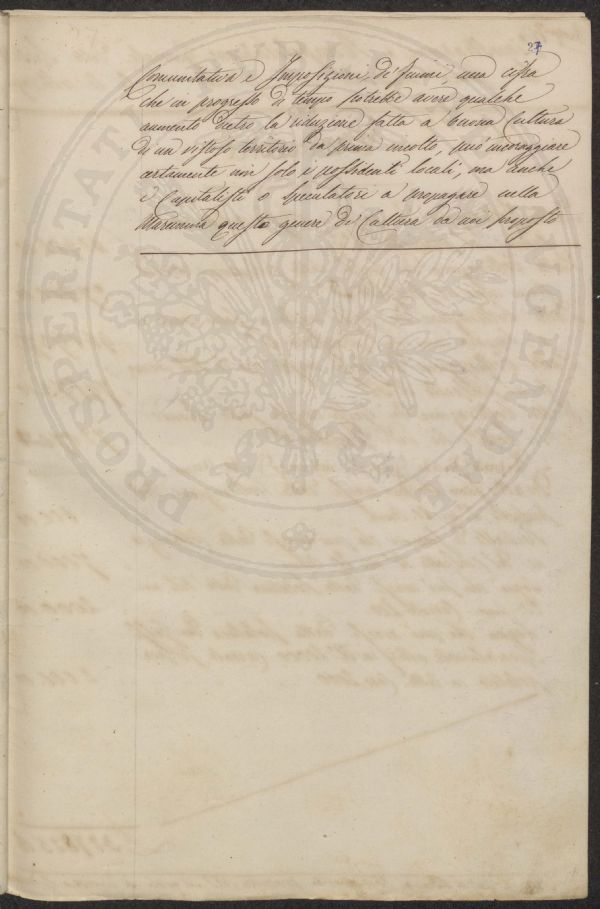 27
Comunitativa e Imposizioni di fiumi, una cifra
che in progresso di tempo potrebbe avere qualche
aumento dietro la riduzione fatta a buona Cultura
di un vistoso territorio da prima incolto, può incoraggiare
certamente non solo i possidenti locali, ma anche
i Capitalisti o Speculatori a propagare nella
Maremma questo genere di Cultura da noi proposto
PROSPERITATI AUGENDAE